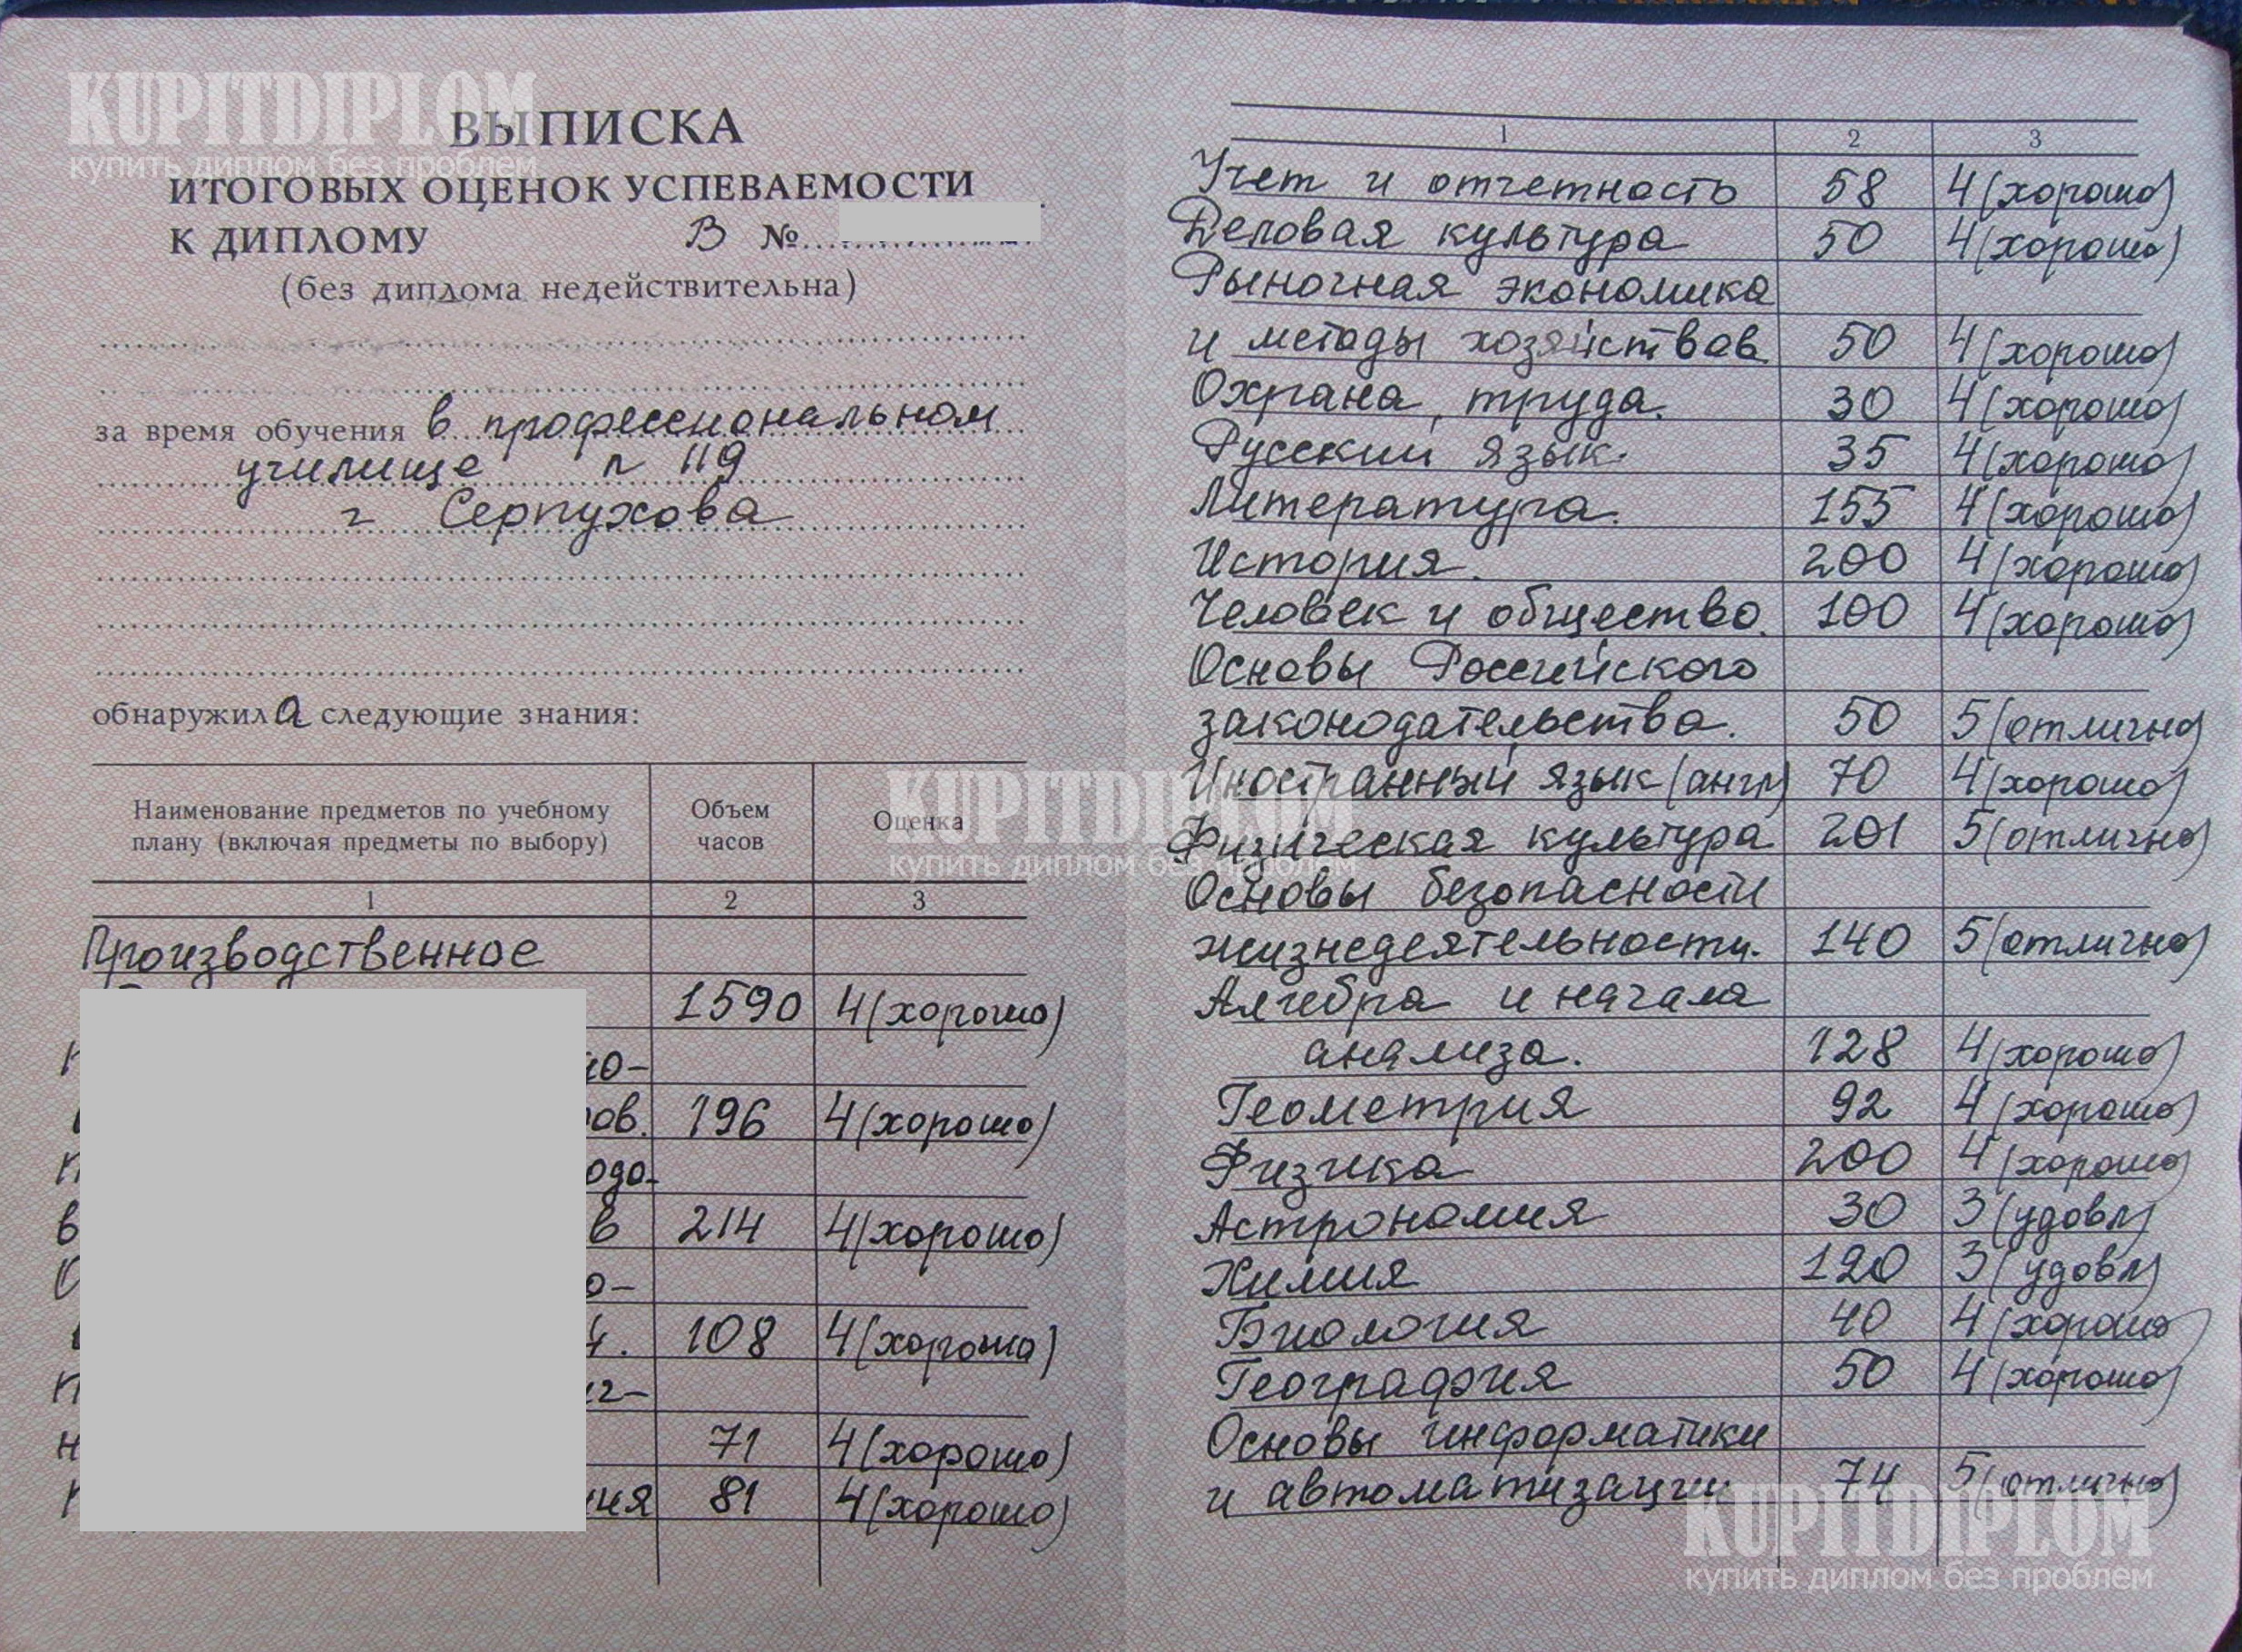 KUPITDIPLOM
купить диплом без проблем
ВЫПИСКА
ИТОГОВЫХ ОЦЕНОК УСПЕВАЕМОСТИ
К ДИПЛОМУ В №
(без диплома недействительна)
за время обучения в профессиональном
училище п 119
г Серпухова
обнаружила следующие знания:
Наименование предметов по учебному плану (включая предметы по выбору) Объем часов Оценка
1 2 3
Производственное
1590 4(хорошо)
ов. 196 4(хорошо)
в 214 4(хорошо)
108 4(хорошо)
71 4(хорошо)
ия 81 4(хорошо)
1 2 3
Учет и отчетность 58 4(хорошо)
Деловая культура 50 4(хорошо)
Рыночная экономика
и методы хозяйствов 50 4(хорошо)
Охрана труда. 30 4(хорошо)
Русский язык. 35 4(хорошо)
Литература. 155 4(хорошо)
История. 200 4(хорошо)
Человек и общество. 100 4(хорошо)
Основы Российского
законодательства. 50 5(отлично)
Иностранный язык (англ) 70 4(хорошо)
Физическая культура 201 5(отлично)
Основы безопасности
жизнедеятельности. 140 5(отлично)
Алгебра и начала
анализа. 128 4(хорошо)
Геометрия 92 4(хорошо)
Физика 200 4(хорошо)
Астрономия 30 3(удовл)
Химия 120 3(удовл)
Биология 40 4(хорошо)
География 50 4(хорошо)
Основы информатики
и автоматизации 74 5(отлично)
KUPITDIPLOM
купить диплом без проблем
KUPITDIPLOM
купить диплом без проблем